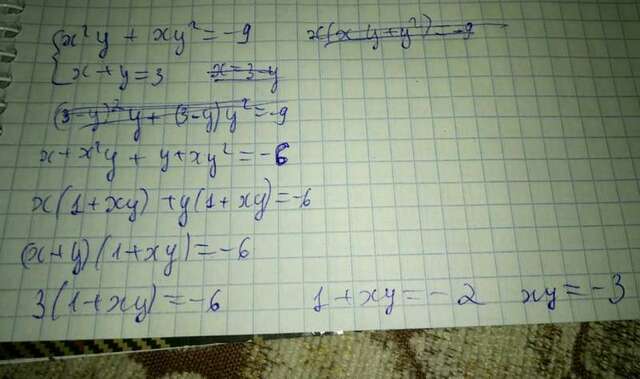 x²y + xy² = -9 x(xy+y²) = -9
x + y = 3 x=3-y
(3-y)²y + (3-y)y² = -9
x+x²y + y+xy² = -6
x(1+xy) +y(1+xy)=-6
(x+y)(1+xy)=-6
3(1+xy)=-6 1+xy=-2 xy=-3